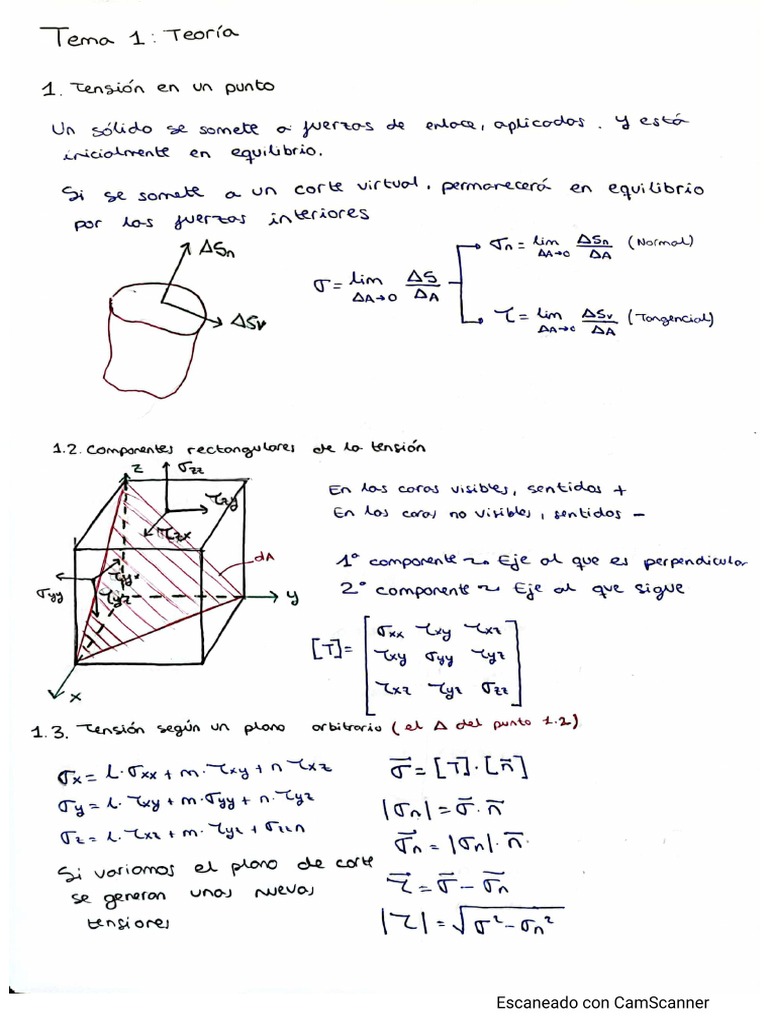 Tema 1: Teoría
1. Tensión en un punto
Un sólido se somete a fuerzas de enlace, aplicadas. Y está
inicialmente en equilibrio.
Si se somete a un corte virtual, permanecerá en equilibrio
por las fuerzas interiores
ΔSn
ΔSv
σ = lim ΔA→0 ΔS/ΔA
σn = lim ΔA→0 ΔSn/ΔA (Normal)
τ = lim ΔA→0 ΔSv/ΔA (Tangencial)
1.2. Componentes rectangulares de la tensión
z σzz
τzy
τzx
dA
σyy τyx
τyz
y
x
En las caras visibles, sentidos +
En las caras no visibles, sentidos −
1º componente ~ Eje al que es perpendicular
2º componente ~ Eje al que sigue
[T] = [σxx τxy τxz
τxy σyy τyz
τxz τyz σzz]
1.3. Tensión según un plano arbitrario (el Δ del punto 1.2)
σx = l·σxx + m·τxy + n τxz
σy = l·τxy + m·σyy + n·τyz
σz = l·τxz + m·τyz + σzz n
Si variamos el plano de corte
se generan unas nuevas
tensiones
σ̄ = [T]·[n̄]
|σn| = σ̄·n̄
σ̄n = |σn|·n̄
τ̄ = σ̄ − σ̄n
|τ| = √(σ² − σn²)
Escaneado con CamScanner